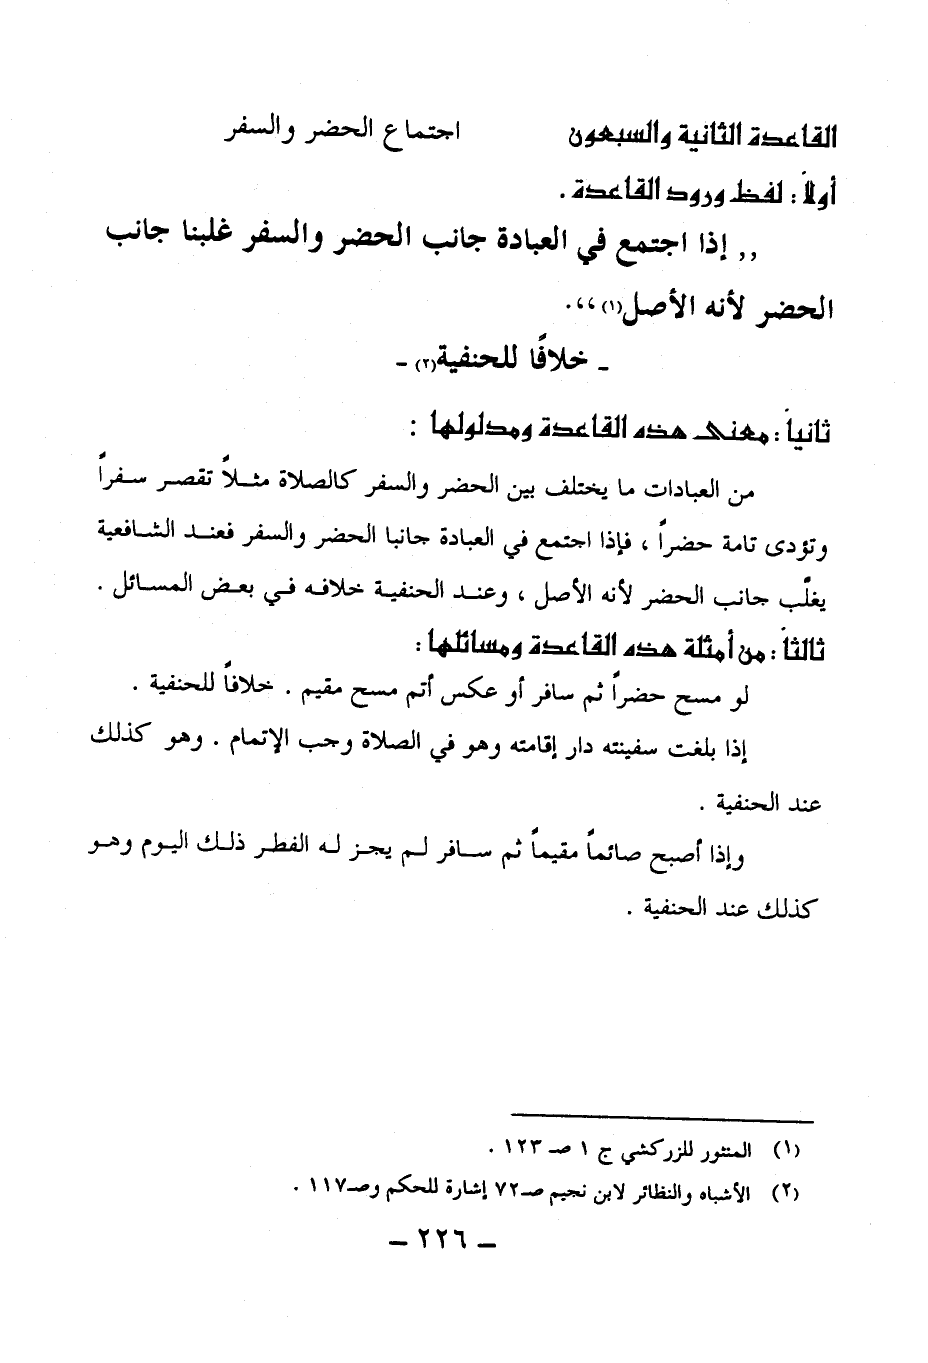 القاعدة الثانية والسبعون اجتماع الحضر والسفر
أولاً : لفظ ورود القاعدة .
,, إذا اجتمع في العبادة جانب الحضر والسفر غلبنا جانب
الحضر لأنه الأصل(١)،، .
ـ خلافًا للحنفية(٢) ـ
ثانياً : معنى هذه القاعدة ومدلولها :
من العبادات ما يختلف بين الحضر والسفر كالصلاة مثلاً تقصر سفراً
وتؤدى تامة حضراً ، فإذا اجتمع في العبادة جانبا الحضر والسفر فعند الشافعية
يغلّب جانب الحضر لأنه الأصل ، وعند الحنفية خلافه في بعض المسائل .
ثالثاً : من أمثلة هذه القاعدة ومسائلها :
لو مسح حضراً ثم سافر أو عكس أتم مسح مقيم . خلافاً للحنفية .
إذا بلغت سفينته دار إقامته وهو في الصلاة وجب الإتمام . وهو كذلك
عند الحنفية .
وإذا أصبح صائماً مقيماً ثم سافر لم يجز له الفطر ذلك اليوم وهو
كذلك عند الحنفية .
(١) المنثور للزركشي ج ١ صـ ١٢٣ .
(٢) الأشباه والنظائر لابن نجيم صـ٧٢ إشارة للحكم وصـ١١٧ .
ـ ٢٢٦ ـ